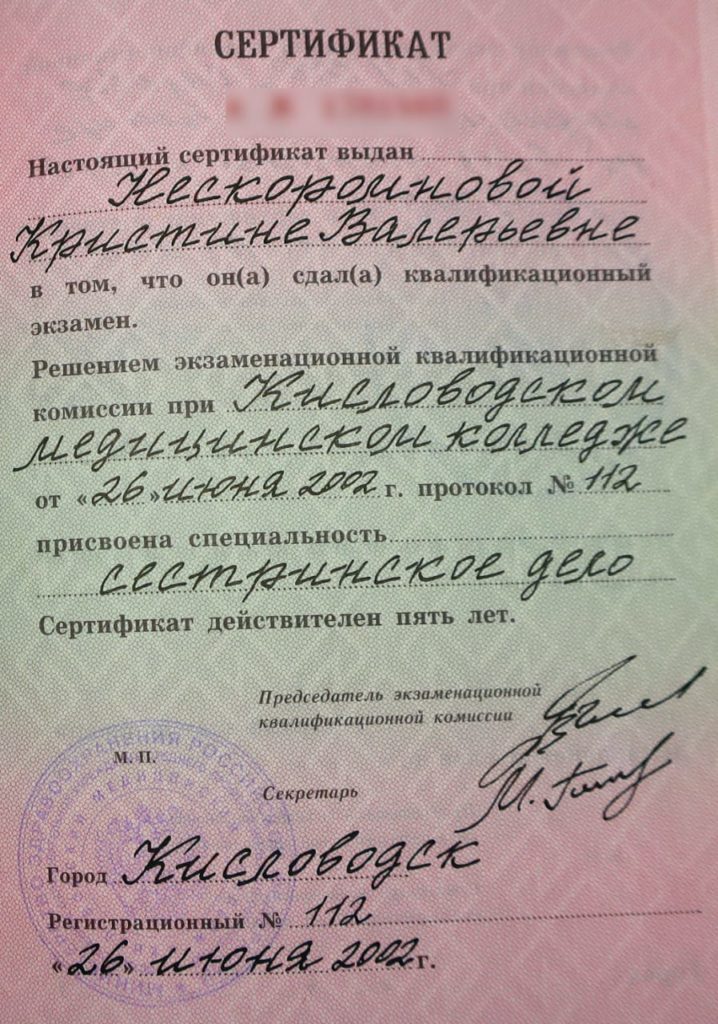 СЕРТИФИКАТ
Настоящий сертификат выдан
Нескоромновой
Кристине Валерьевне
в том, что он(а) сдал(а) квалификационный
экзамен.
Решением экзаменационной квалификационной
комиссии при Кисловодском
медицинском колледже
от «26» июня 2002 г. протокол № 112
присвоена специальность
сестринское дело
Сертификат действителен пять лет.
Председатель экзаменационной
квалификационной комиссии
М. П.
Секретарь
Город Кисловодск
Регистрационный № 112
«26» июня 2002 г.